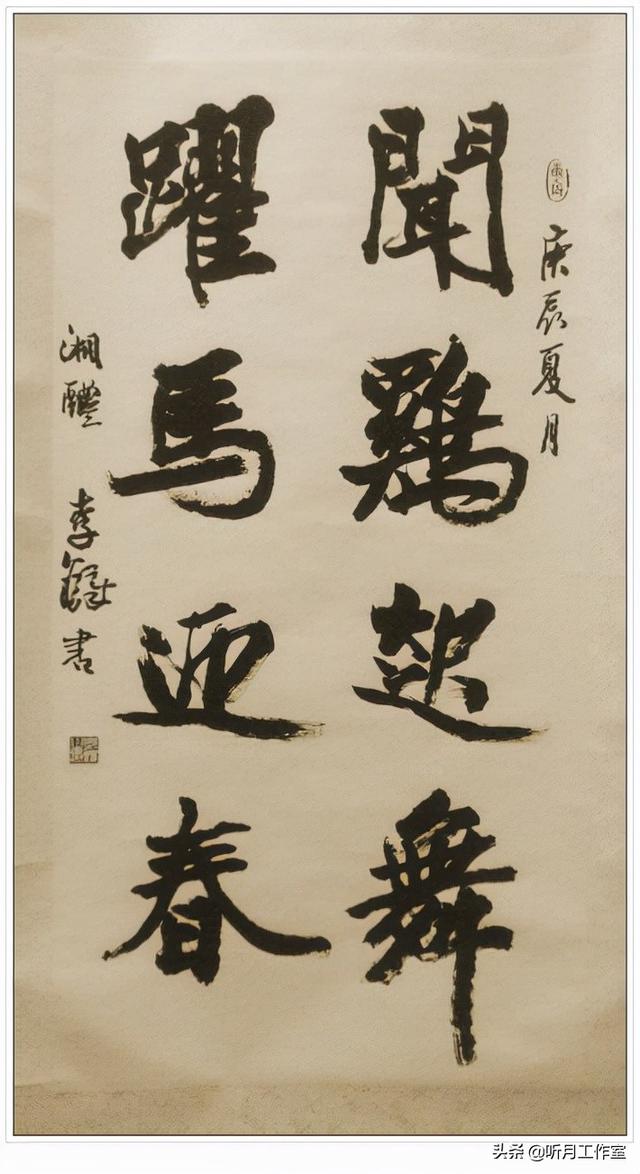 庚辰夏月
聞鷄起舞
躍馬迎春
湘醴 李鐸書
头条 @听月工作室